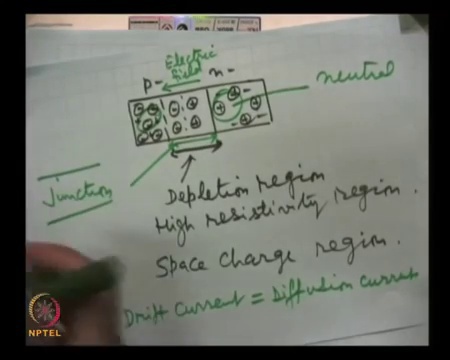 Electric
Field
p-
n-
neutral
junction
Depletion region
High resistivity region.
Space charge region.
Drift current = Diffusion current
NPTEL